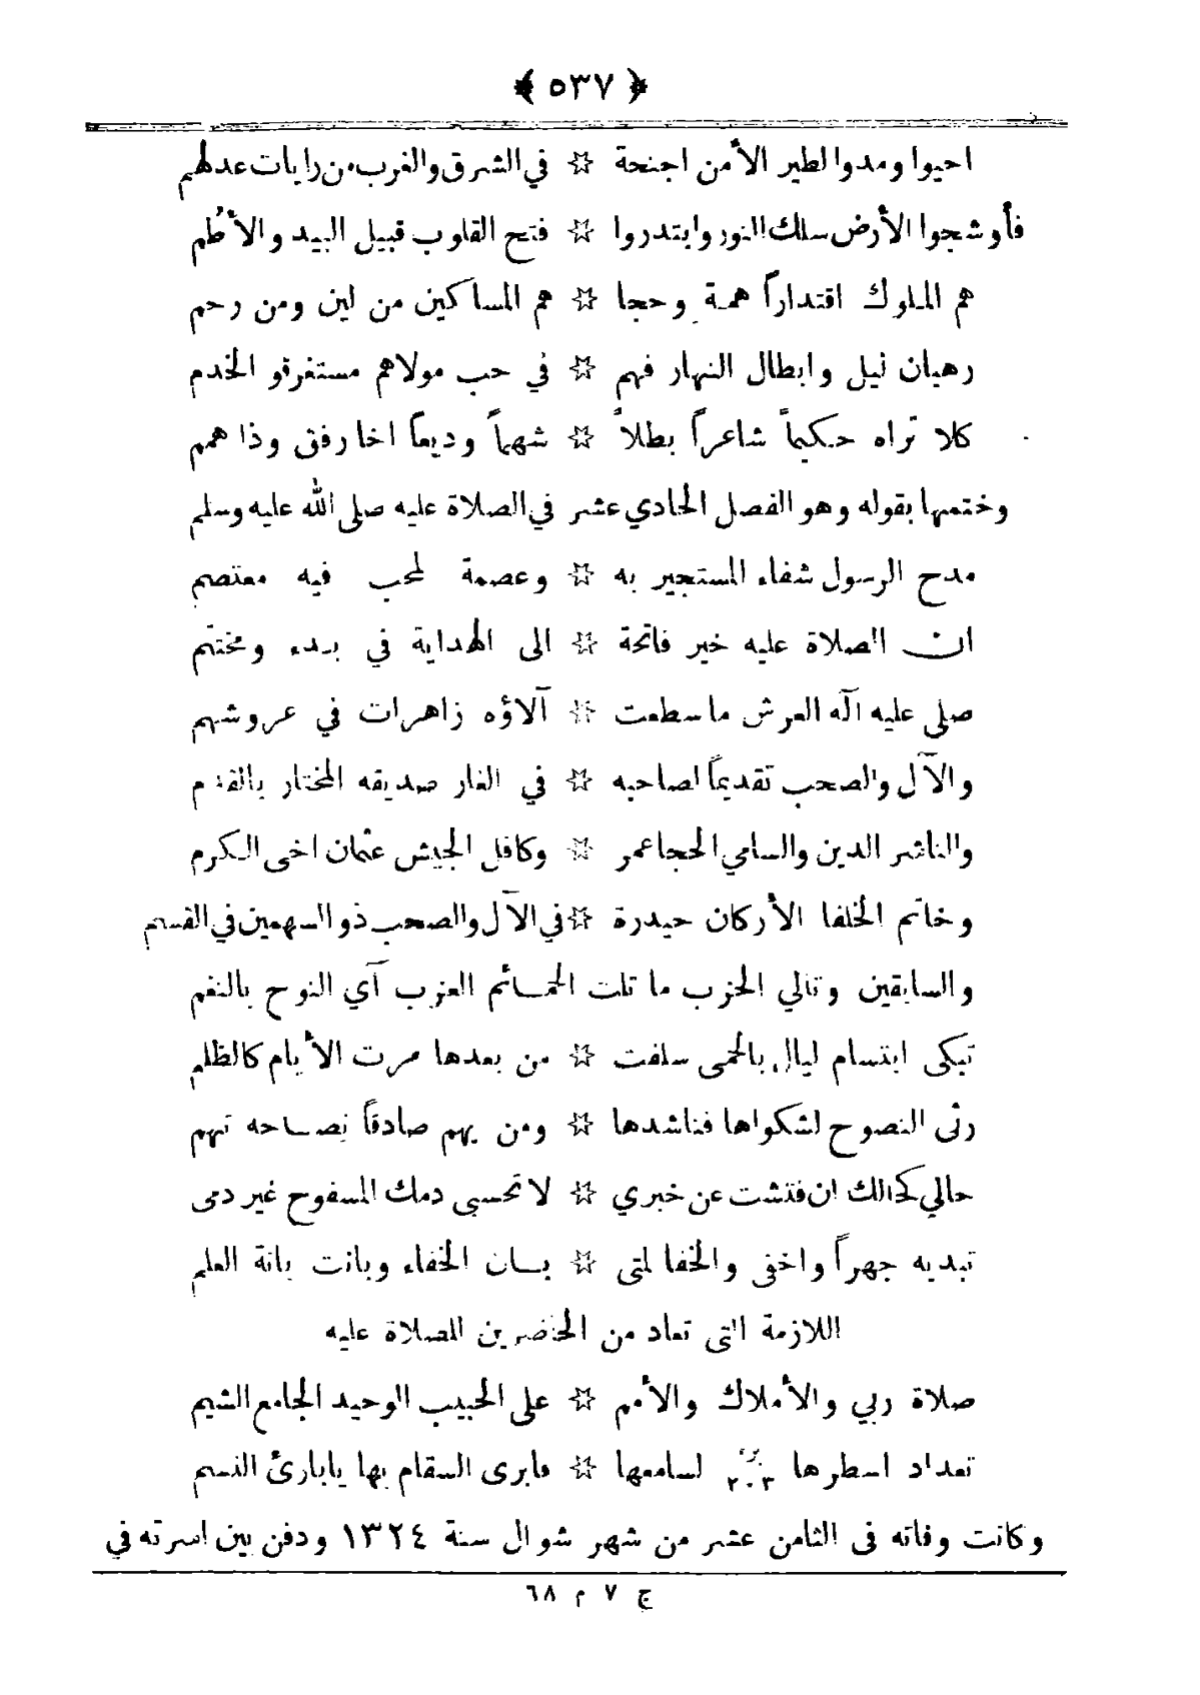 ﴿ ٥٣٧ ﴾
احيوا ومدوا لطير الأمن اجنحة ☆ في الشرق والغرب من رايات عدلهم
فأوشجوا الأرض سلك النور وابتدروا ☆ فتح القلوب قبيل البيد والأطُم
هم الملوك اقتداراً همة وحجا ☆ هم المساكين من لين ومن رحم
رهبان ليل وابطال النهار فهم ☆ في حب مولاهم مستغرقو الخدم
كلا تراه حكيماً شاعراً بطلاً ☆ شهماً وديعاً اخا رفق وذا همم
وختمها بقوله وهو الفصل الحادي عشر في الصلاة عليه صلى الله عليه وسلم
مدح الرسول شفاء المستجير به ☆ وعصمة لمحب فيه معتصم
ان الصلاة عليه خير فاتحة ☆ الى الهداية في بدء ومختتم
صلى عليه آله العرش ما سطعت ☆ آلاؤه زاهرات في عروشهم
والآل والصحب تقديماً لصاحبه ☆ في الغار صديقه المختار بالقدم
والناشر الدين والسامي الحجا عمر ☆ وكافل الجيش عثمان اخى الكرم
وخاتم الخلفا الأركان حيدرة ☆ في الآل والصحب ذو السهمين في القسم
والسابقين وتالي الحزب ما تلت الحمائم العزب آي النوح بالنغم
تبكى ابتسام ليال بالحمى سلفت ☆ من بعدها مرت الأيام كالظلم
رثى النصوح لشكواها فناشدها ☆ ومن يهم صادقاً نصاحه تهم
حالي كحالك ان فتشت عن خبري ☆ لا تحسبى دمك المسفوح غير دمى
تبديه جهراً واخفى والخفا لمتى ☆ بان الخفاء وبانت بانة العلم
اللازمة التى تعاد من الحاضرين للصلاة عليه
صلاة ربي والأملاك والأمم ☆ على الحبيب الوحيد الجامع الشيم
تعداد اسطرها ٢٠٣ لسامعها ☆ فابرى السقام بها يابارئ النسم
وكانت وفاته فى الثامن عشر من شهر شوال سنة ١٣٢٤ ودفن بين اسرته في
ج ٧ م ٦٨